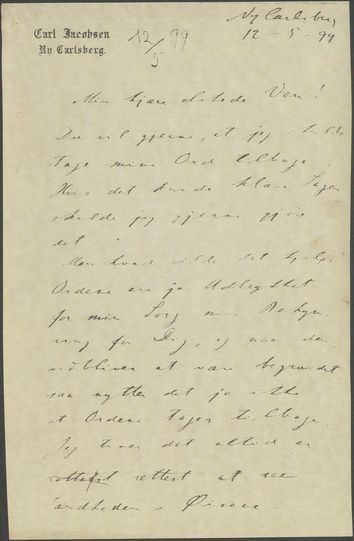 Carl Jacobsen
Ny Carlsberg.
12/5 99
Ny Carlsberg
12 - 5 - 99
Min kjære elskede Ven!
Du vil gjerne, at jeg skulde
tage mine Ord tilbage.
Hvis det kunde klare Sagen
skulde jeg gjerne gjøre
det.
Men hvad vilde det hjælpe
Ordene ere jo Udtrykket
for min Sorg min Bekym
ring for Dig, og naar den
vedbliver at være begrundet
saa nytter det jo ikke
at Ordene tages tilbage.
Jeg troer det altid er
rettest at se
Sandheden i Øinene